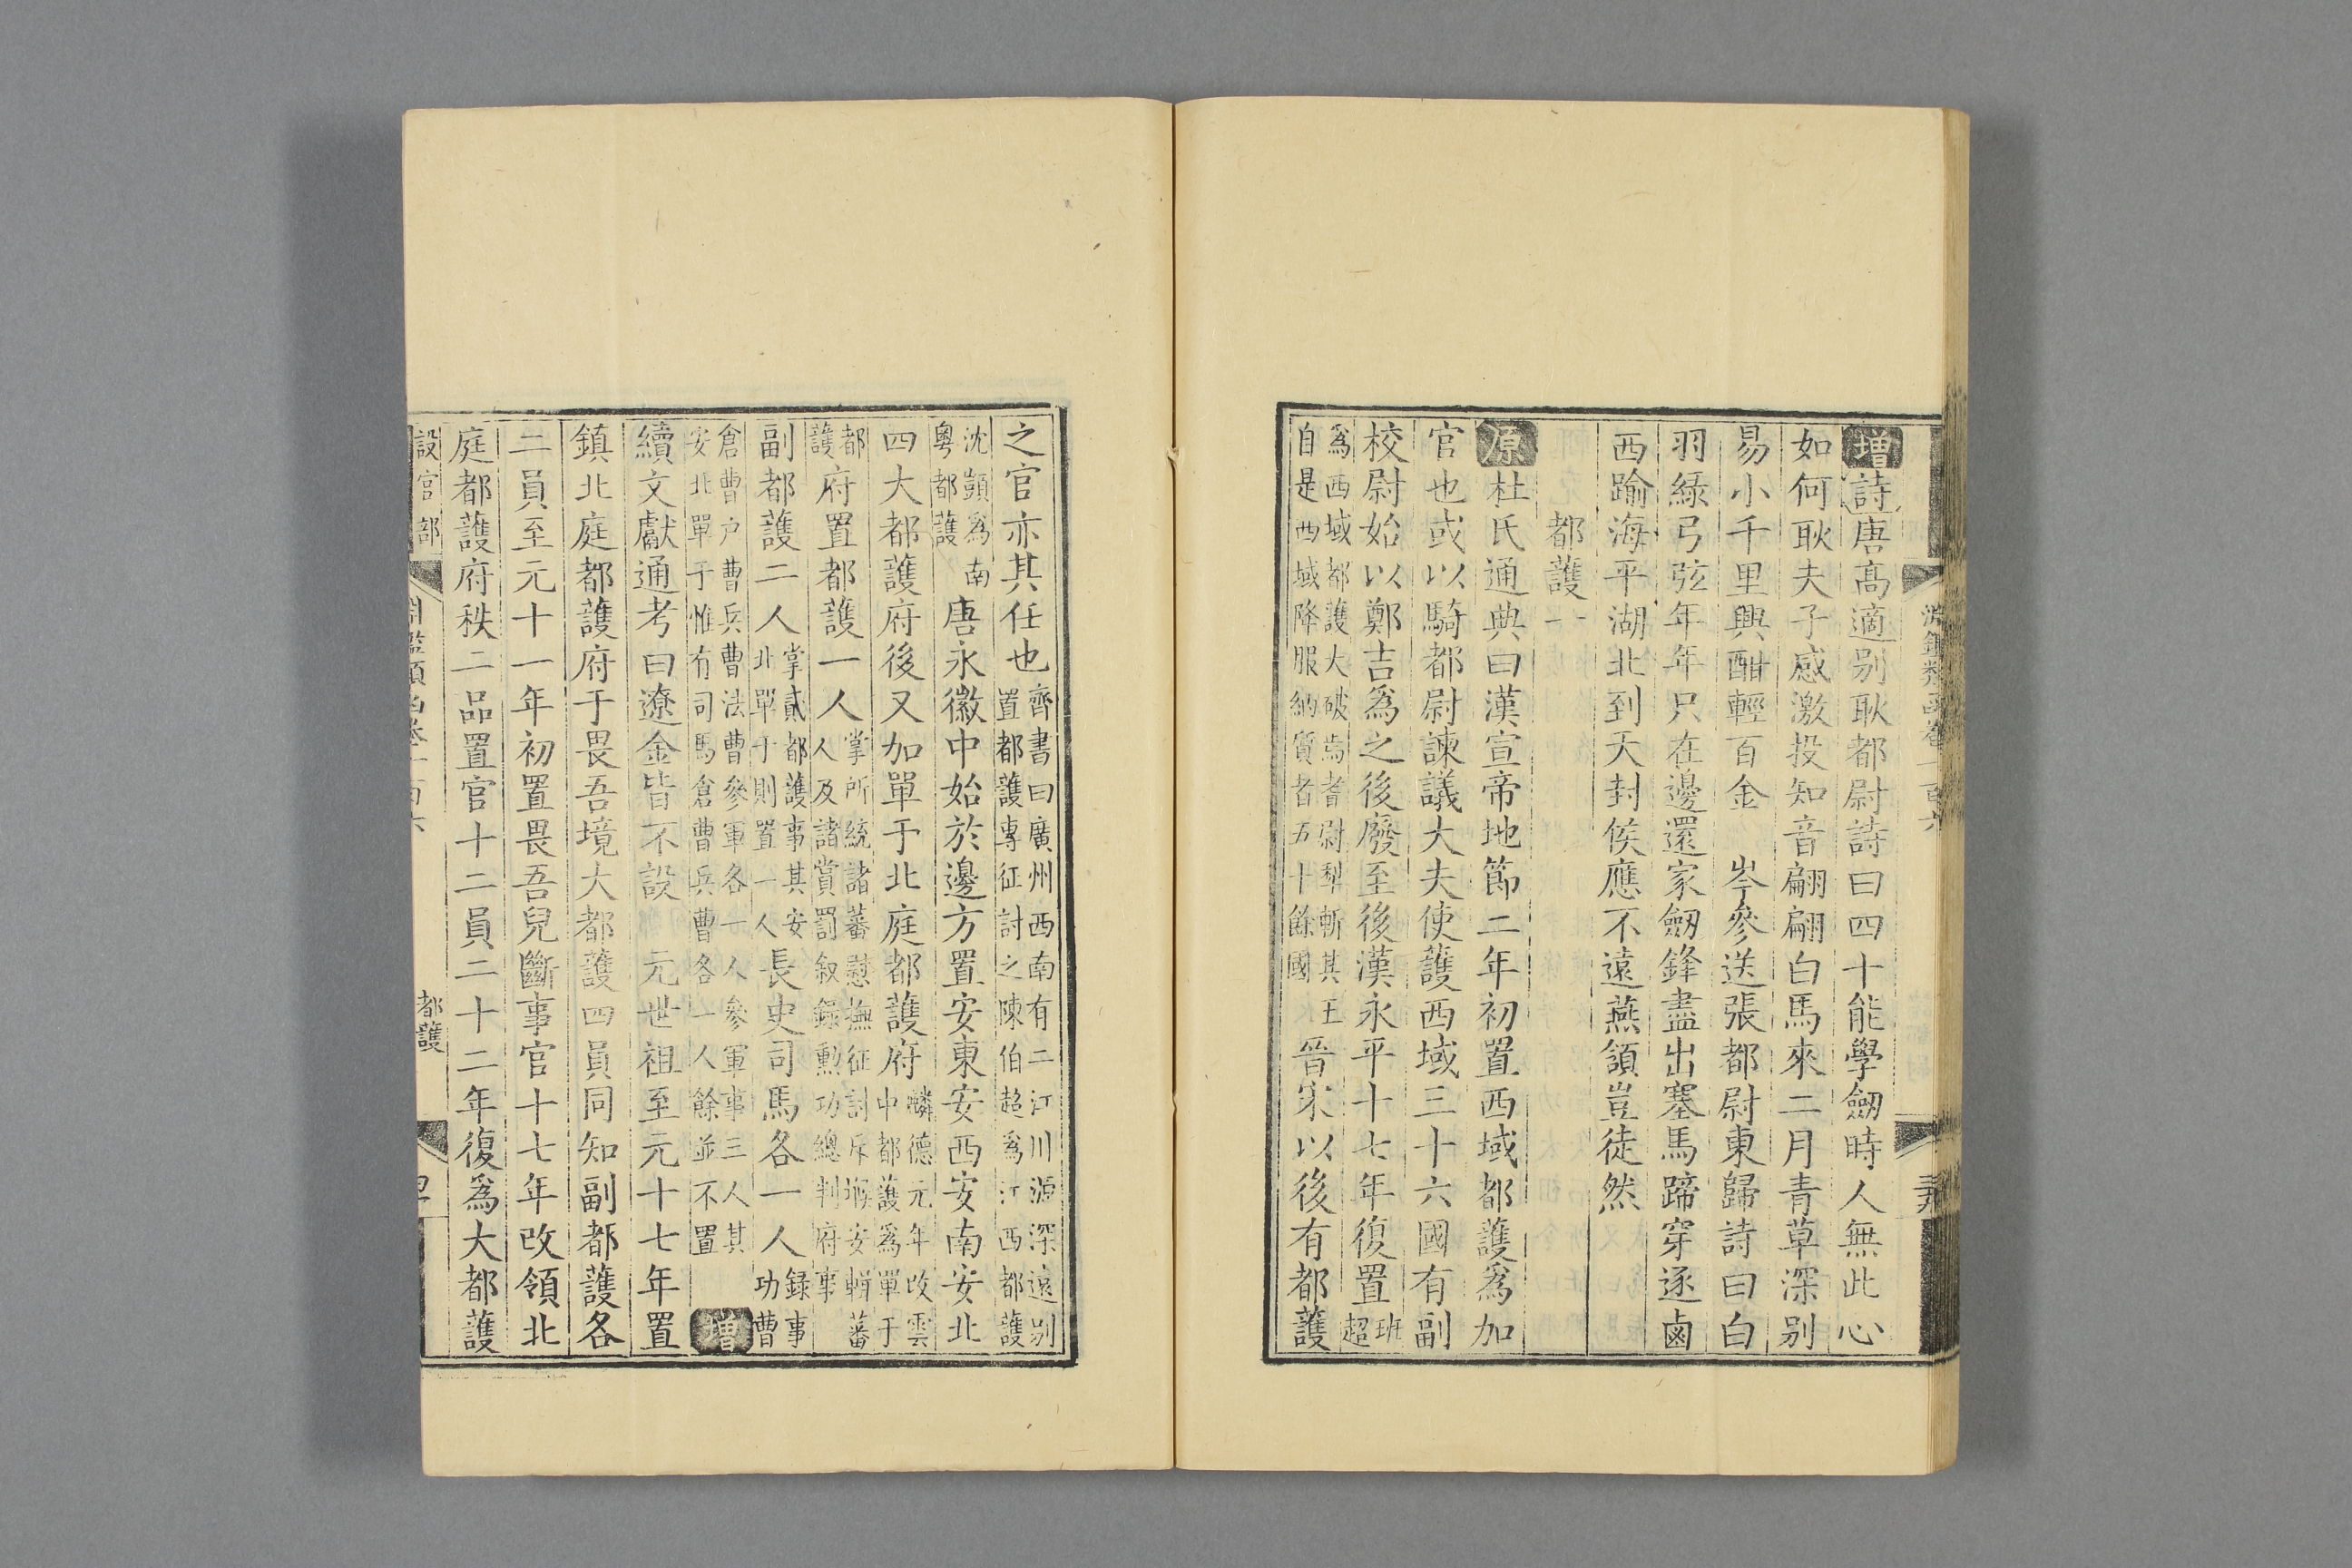 增詩唐高適别耿都尉詩曰四十能學劒時人無此心
如何耿夫子感激投知音翩翩白馬來二月青草深别
易小千里興酣輕百金　岑參送張都尉東歸詩曰白
羽緑弓弦年年只在邊還家劒鋒盡出塞馬蹄穿逐鹵
西踰海平湖北到天封侯應不遠燕頷豈徒然
都護一
原杜氏通典曰漢宣帝地節二年初置西域都護爲加
官也或以騎都尉諫議大夫使護西域三十六國有副
校尉始以鄭吉爲之後廢至後漢永平十七年復置班超
爲西域都護大破焉耆尉犁斬其王自是西域降服納質者五十餘國晉宋以後有都護
之官亦其任也齊書曰廣州西南有二江川源深遠别置都護專征討之陳伯超爲江西都護
沈顗爲南粵都護唐永徽中始於邊方置安東安西安南安北
四大都護府後又加單于北庭都護府麟德元年改雲中都護爲單于
都護府置都護一人掌所統諸蕃慰撫征討斥堠安輯蕃人及諸賞罰叙録勲功總判府事
副都護二人掌貳都護事其安北單于則置一人長史司馬各一人録事功曹
倉曹户曹兵曹法曹參軍各一人參軍事三人其安北單于惟有司馬倉曹兵曹各一人餘並不置增
續文獻通考曰遼金皆不設　元世祖至元十七年置
鎮北庭都護府于畏吾境大都護四員同知副都護各
二員至元十一年初置畏吾兒斷事官十七年改領北
庭都護府秩二品置官十二員二十二年復爲大都護
設官部
都護